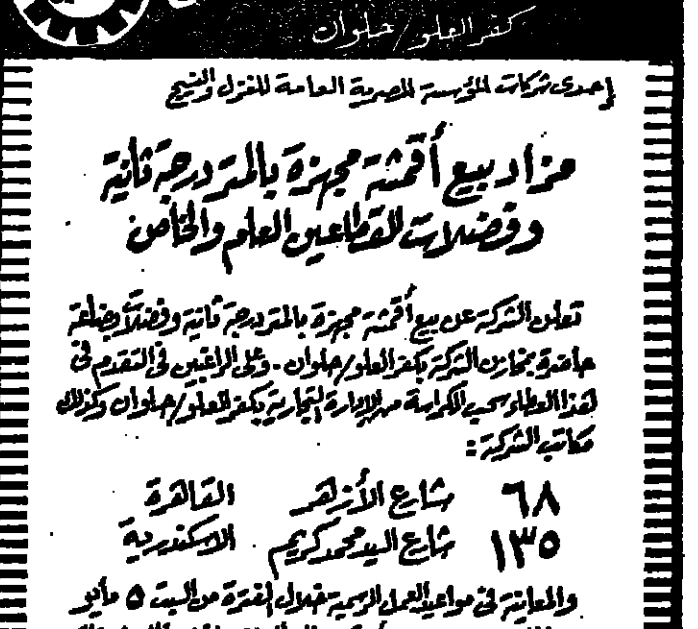 كفر العلو / حلوان
إحدى شركات المؤسسة المصرية العامة للغزل والنسيج
مزاد بيع أقمشة مجهزة بالمتر درجة ثانية
وفضلات للقطاعين العام والخاص
تعلن الشركة عن بيع أقمشة مجهزة بالمتر درجة ثانية وفضلات وبضاعة
حاضرة بمخازن الشركة بكفر العلو / حلوان - وعلى الراغبين في التقدم في
لهذا العطاء سحب الكراسة من الإدارة التجارية بكفر العلو / حلوان وكذلك
مكاتب الشركة :
٦٨ شارع الأزهر القاهرة
١٣٥ شارع السيد محمد كريم الاسكندرية
والمعاينة في مواعيد العمل الرسمية خلال الفترة من السبت ٥ مايو